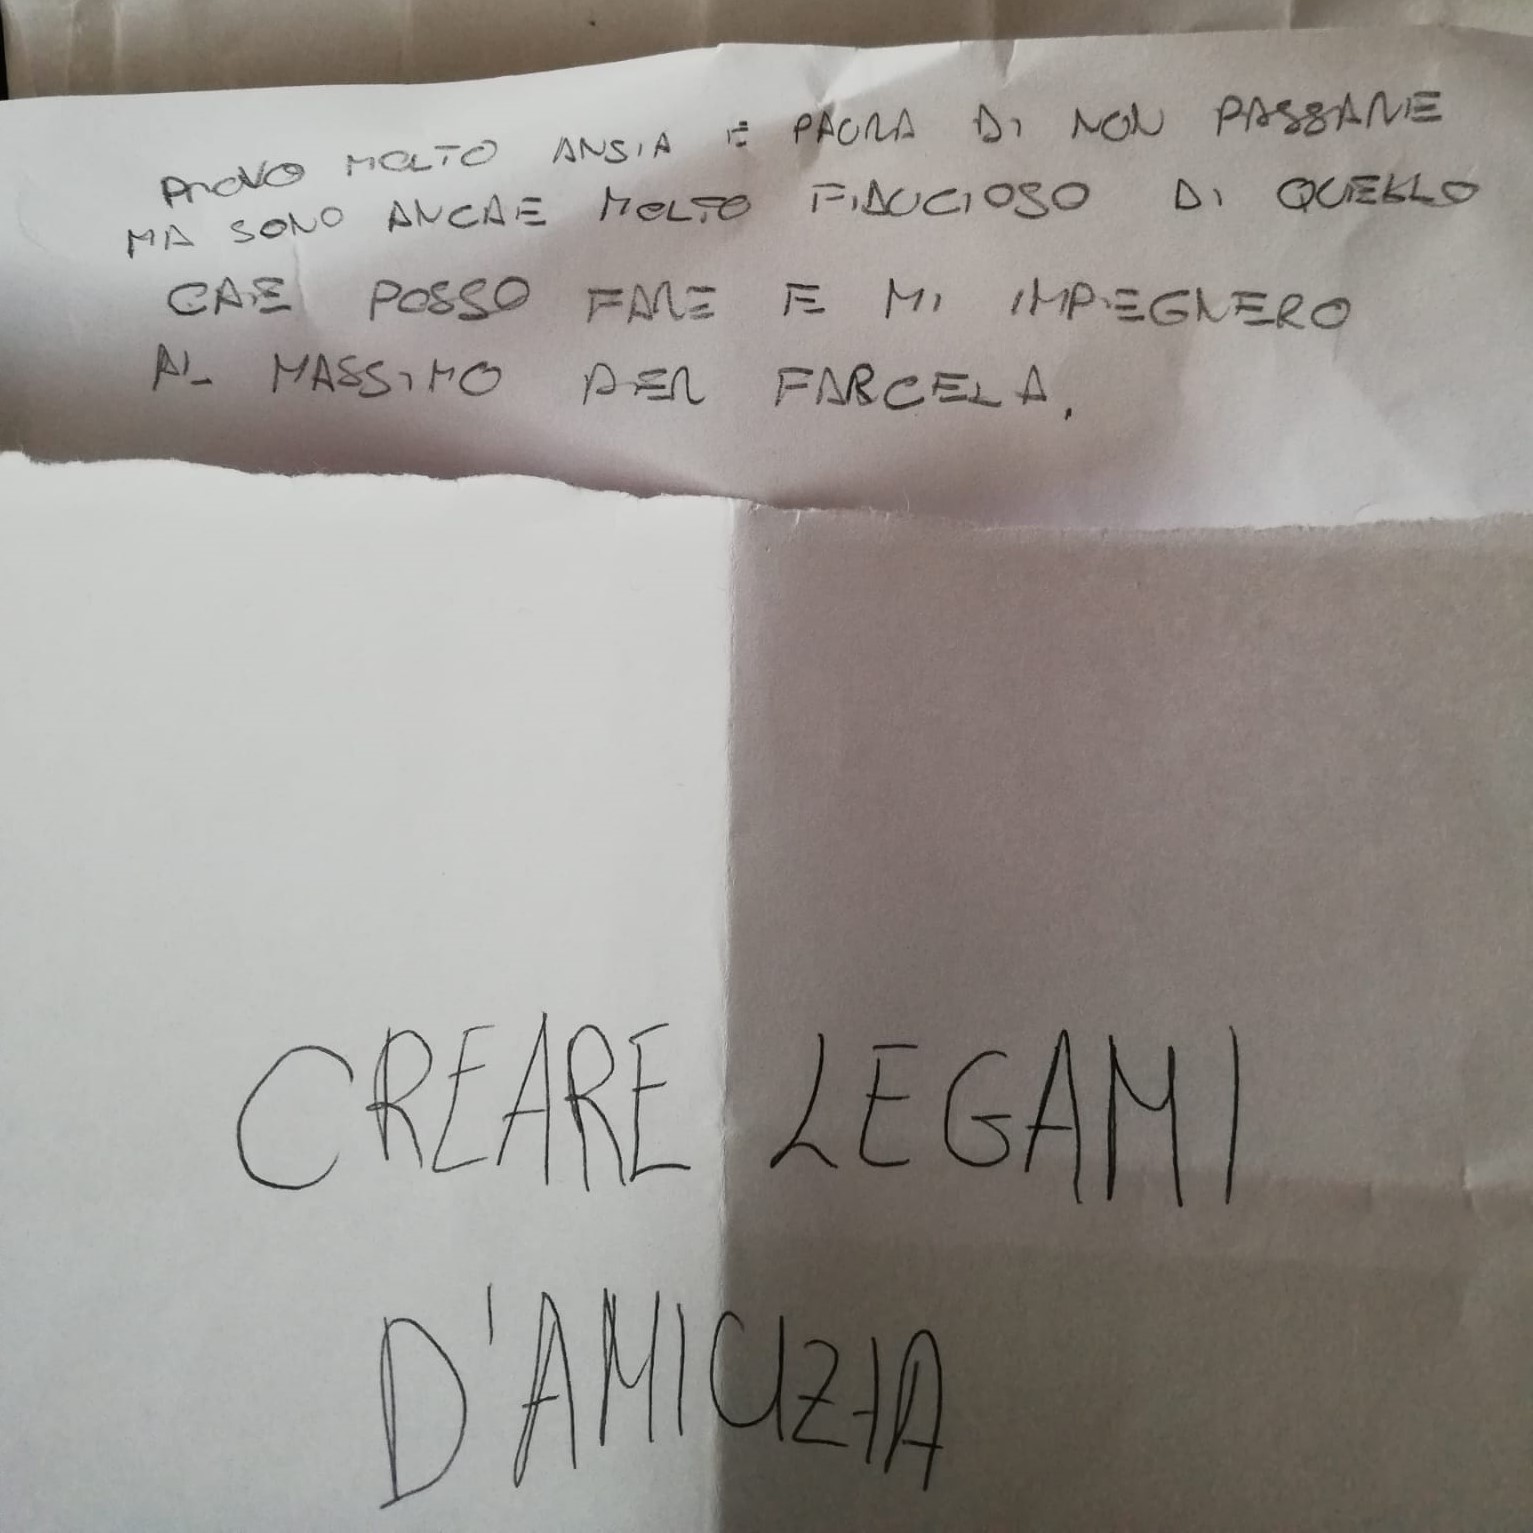 PROVO MOLTO ANSIA E PAURA DI NON PASSARE
MA SONO ANCHE MOLTO FIDUCIOSO DI QUELLO
CHE POSSO FARE E MI IMPEGNERO
AL MASSIMO PER FARCELA.
CREARE LEGAMI
D'AMICIZIA